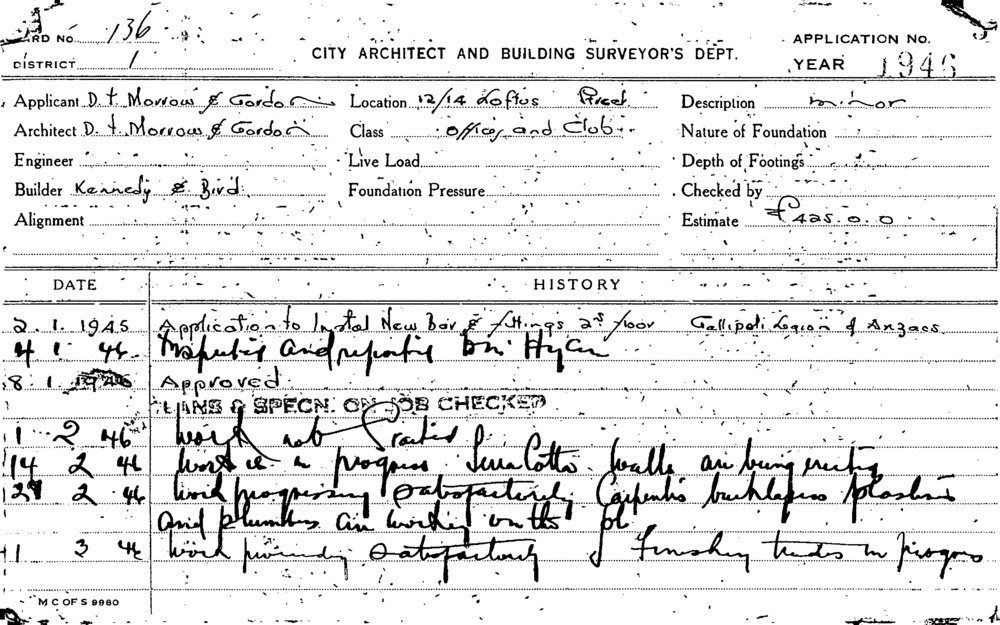 CARD No. 136
DISTRICT 1
CITY ARCHITECT AND BUILDING SURVEYOR'S DEPT.
APPLICATION No.
YEAR 1946
Applicant D. T. Morrow & Gordon Location 12/14 Loftus Street Description minor
Architect D. T. Morrow & Gordon Class Offices and Club Nature of Foundation
Engineer Live Load Depth of Footings
Builder Kennedy & Bird Foundation Pressure Checked by
Alignment Estimate £425.0.0
DATE HISTORY
2. 1. 1945 Application to Instal New Bar & fittings 2nd floor Gallipoli Legion of Anzacs
4 1 46 and
8 1 1946 Approved
PLANS & SPECN. ON JOB CHECKED
1 2 46 Work not started
14 2 46 Work is in progress Terra Cotta walls are being
2 46 Work progressing satisfactorily Carpenters bricklayers plasterers
and plumbers are working on the job
11 3 46 Work proceeding satisfactorily Finishing trades in progress
M C OF S 9980